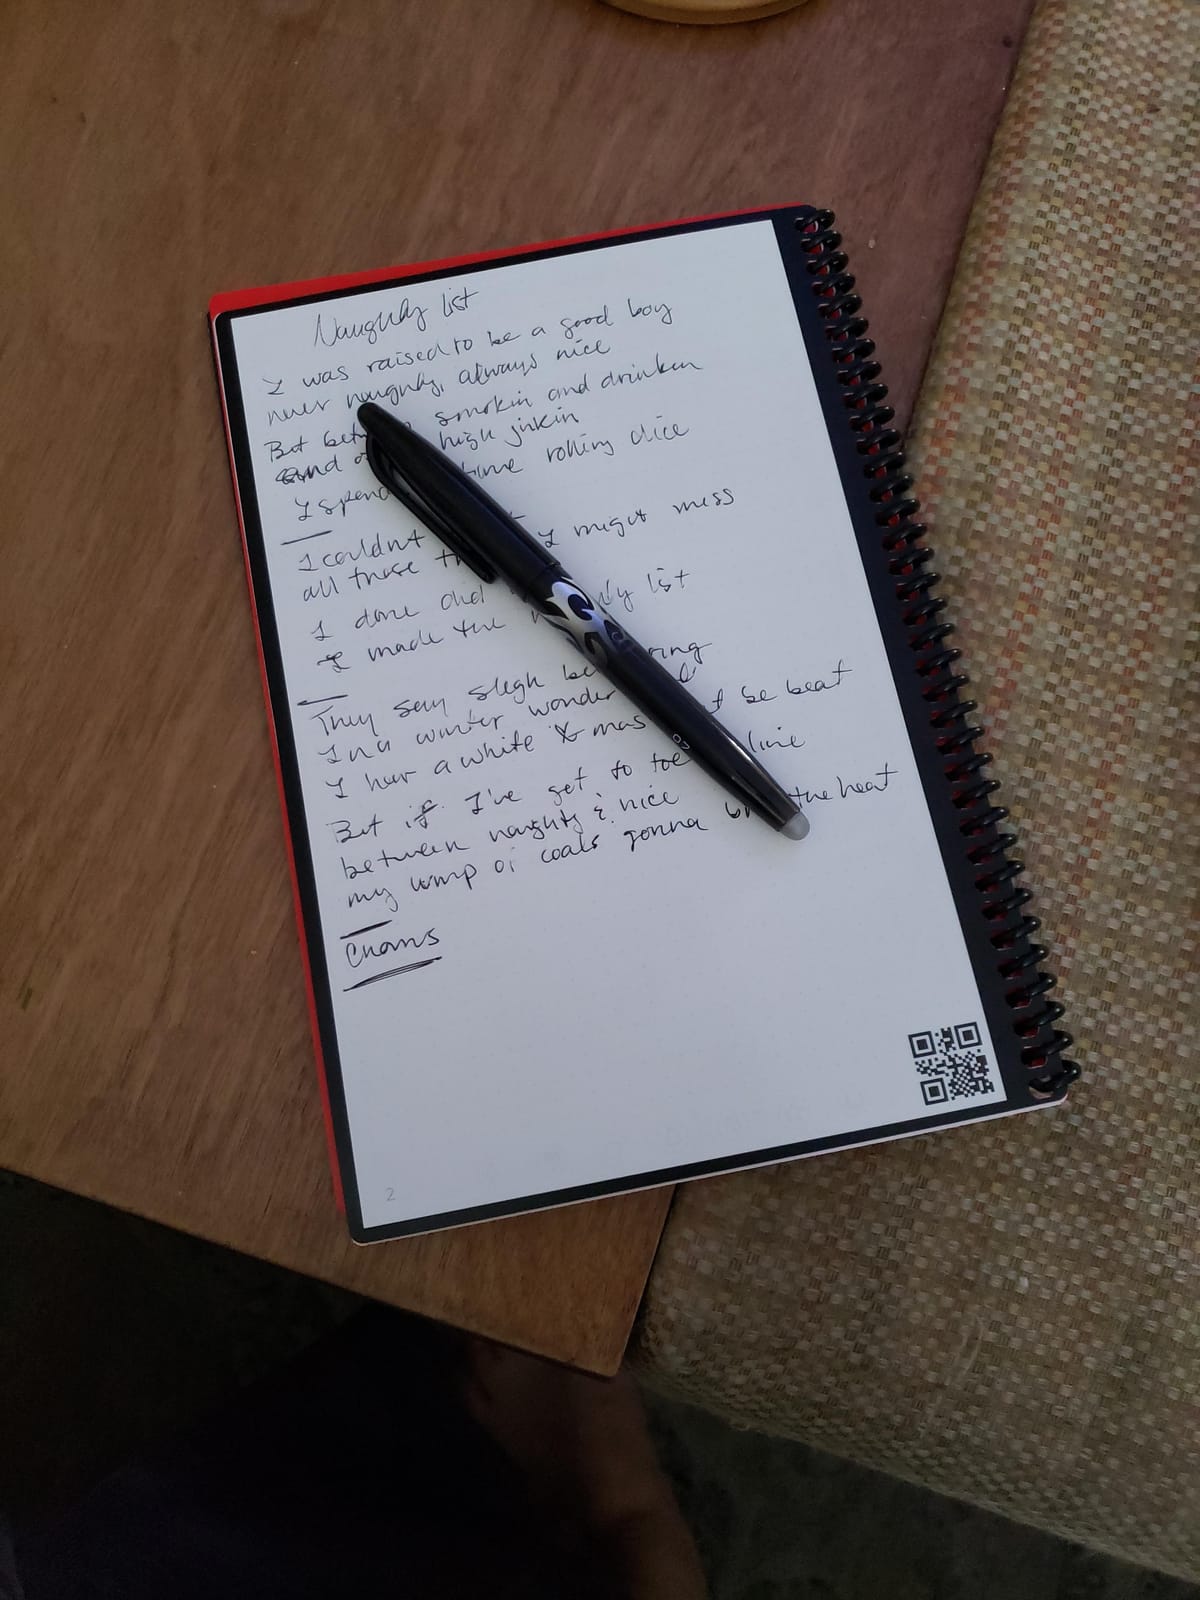 Naughty list
I was raised to be a good boy
never naughty, always nice
But smokin and drinken
and high jinkin
I time rolling dice
I couldn't
all those I might miss
I done did
I made the list
They say slegh be
In a winter wonder
I hear a white Xmas be beat
But if I've got to toe line
between naughty & nice
my lump of coals gonna the heat
Chorus
2